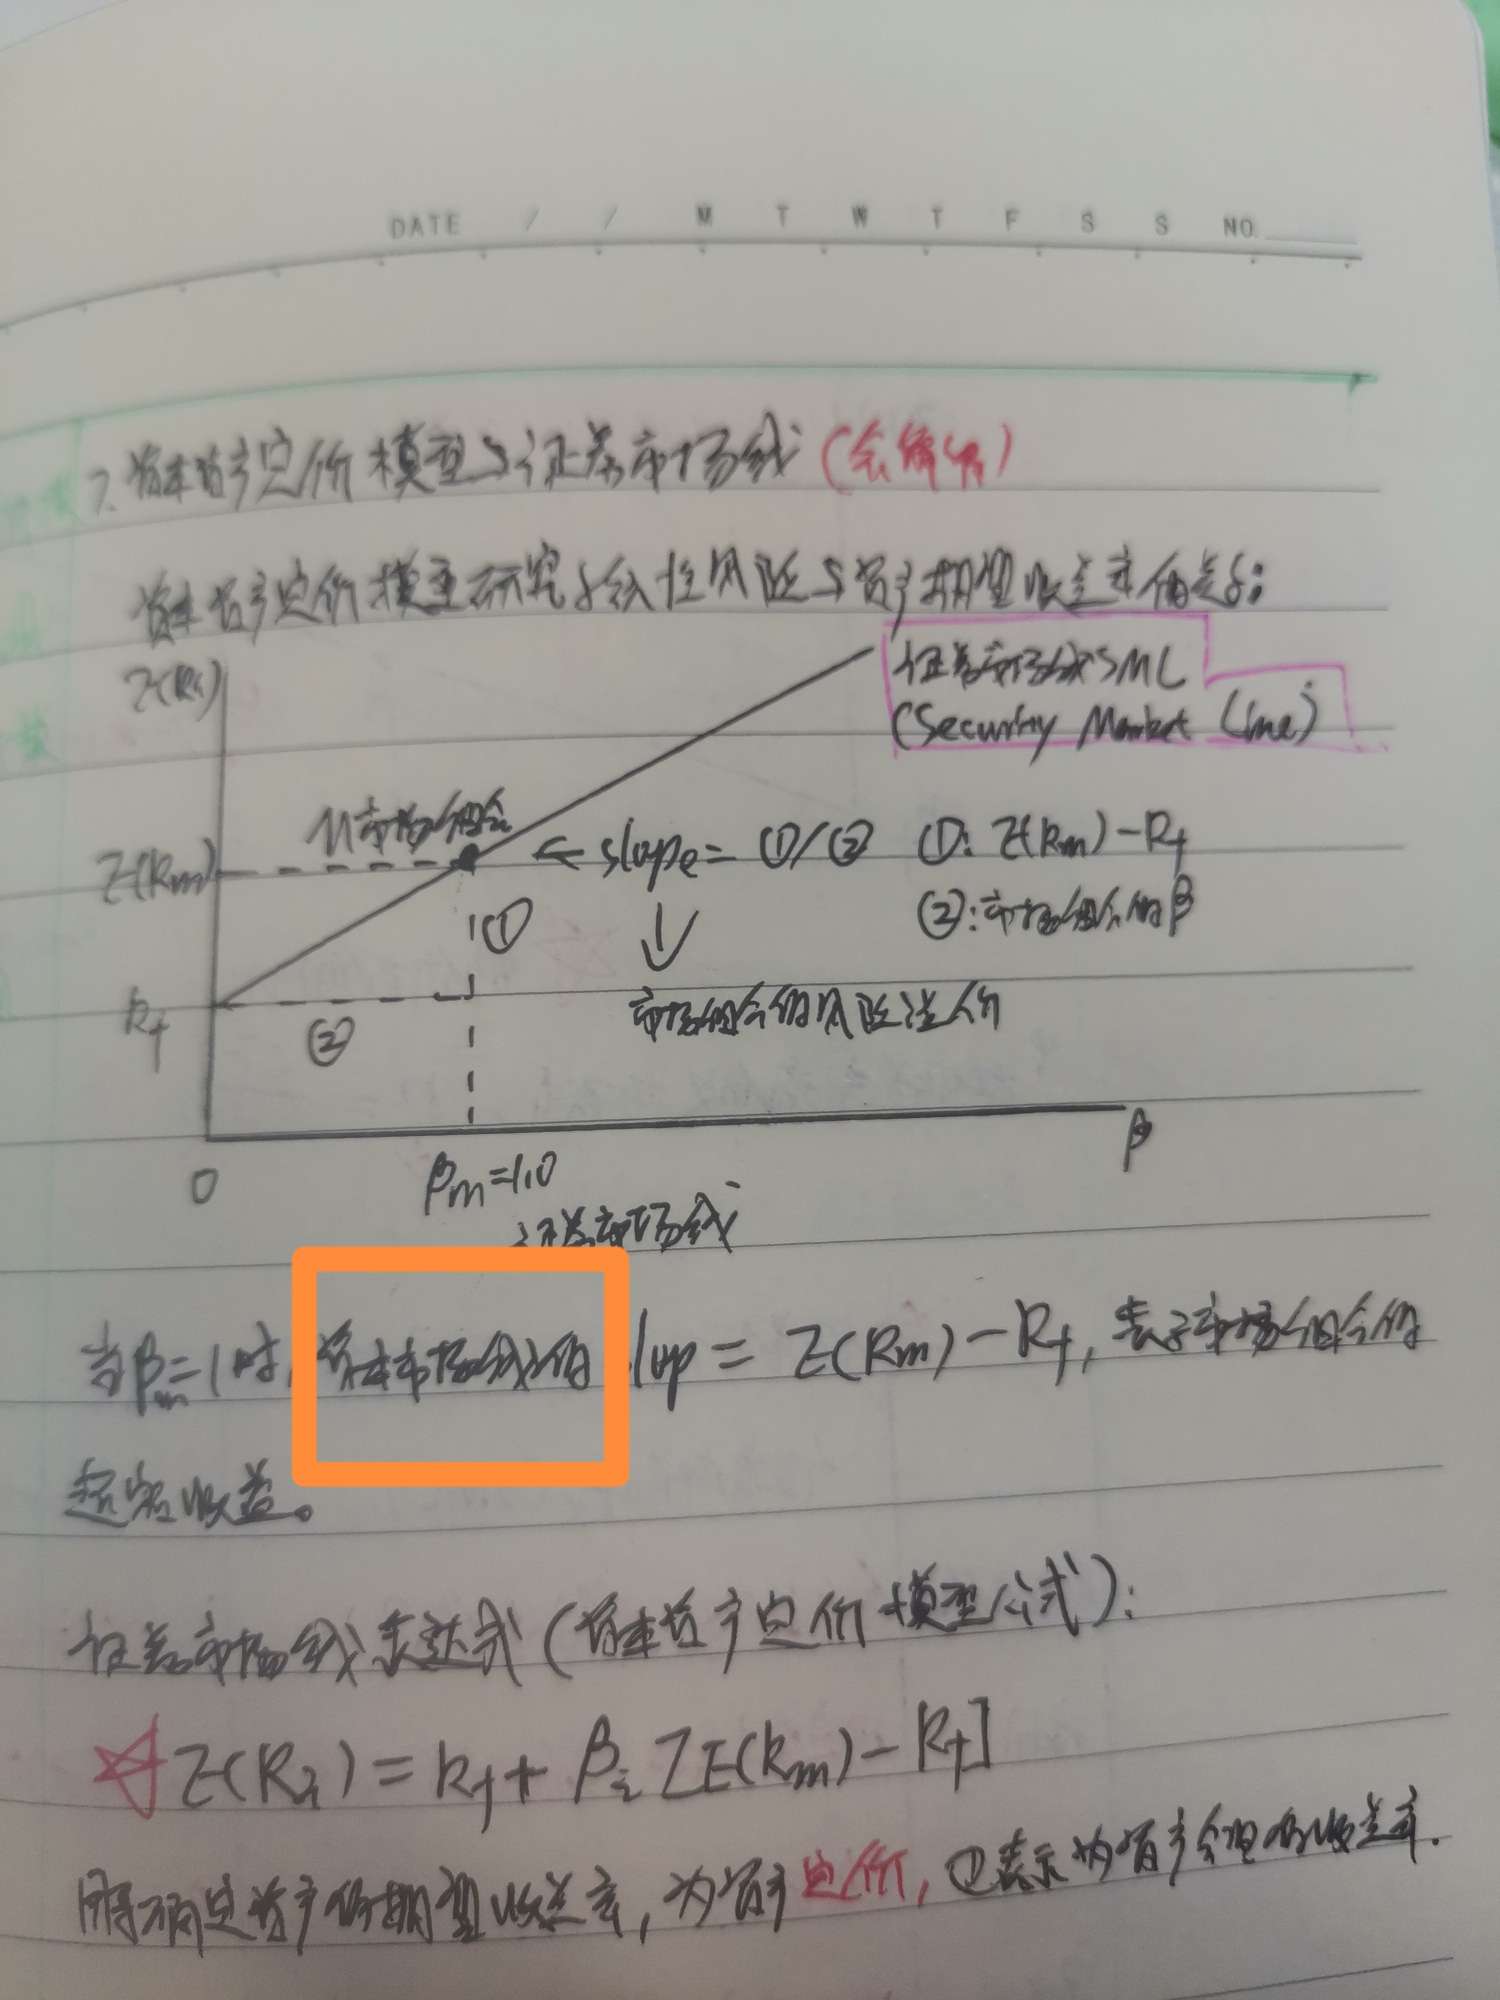 DATE / / M T W T F S S NO.
7. 资本资产定价模型与证券市场线(会解释)
资本资产定价模型研究系统性风险与资产期望收益率的关系:
E(Ri)
证券市场线SML
(Security Market Line)
M市场组合
E(Rm)
← slope = ①/② ①: E(Rm) - Rf
②: 市场组合的β
①
↓
Rf
②
市场组合的风险溢价
0
βm=1.0
β
证券市场线
当βm=1时, 资本市场线的 slop = E(Rm) - Rf, 表示市场组合的
超额收益。
证券市场线表达式(资本资产定价模型公式):
☆ E(Ri) = Rf + βi [E(Rm) - Rf]
用来确定资产的期望收益率, 为资产定价, ①表示为资产合理的收益率.